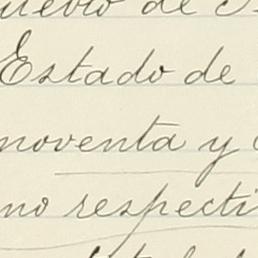 pueblo de S
Estado de
noventa y c
no respecti